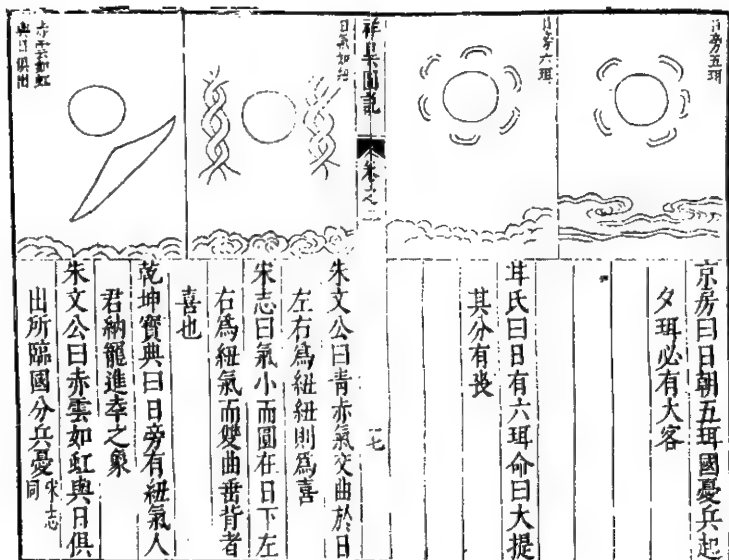 日旁五珥
京房曰日朝五珥國憂兵起
夕珥必有大客
日旁六珥
甘氏曰日有六珥命曰大提
其分有喪
祥異圖說
卷之二
十七
日氣如紐
朱文公曰青赤氣交曲於日
左右爲紐紐則爲喜
宋志曰氣小而圓在日下左
右爲紐氣而雙曲垂背者
喜也
乾坤寶典曰日旁有紐氣人
君納寵進幸之象
赤雲如虹
與日俱出
朱文公曰赤雲如虹與日俱
出所臨國分兵憂宋志
同